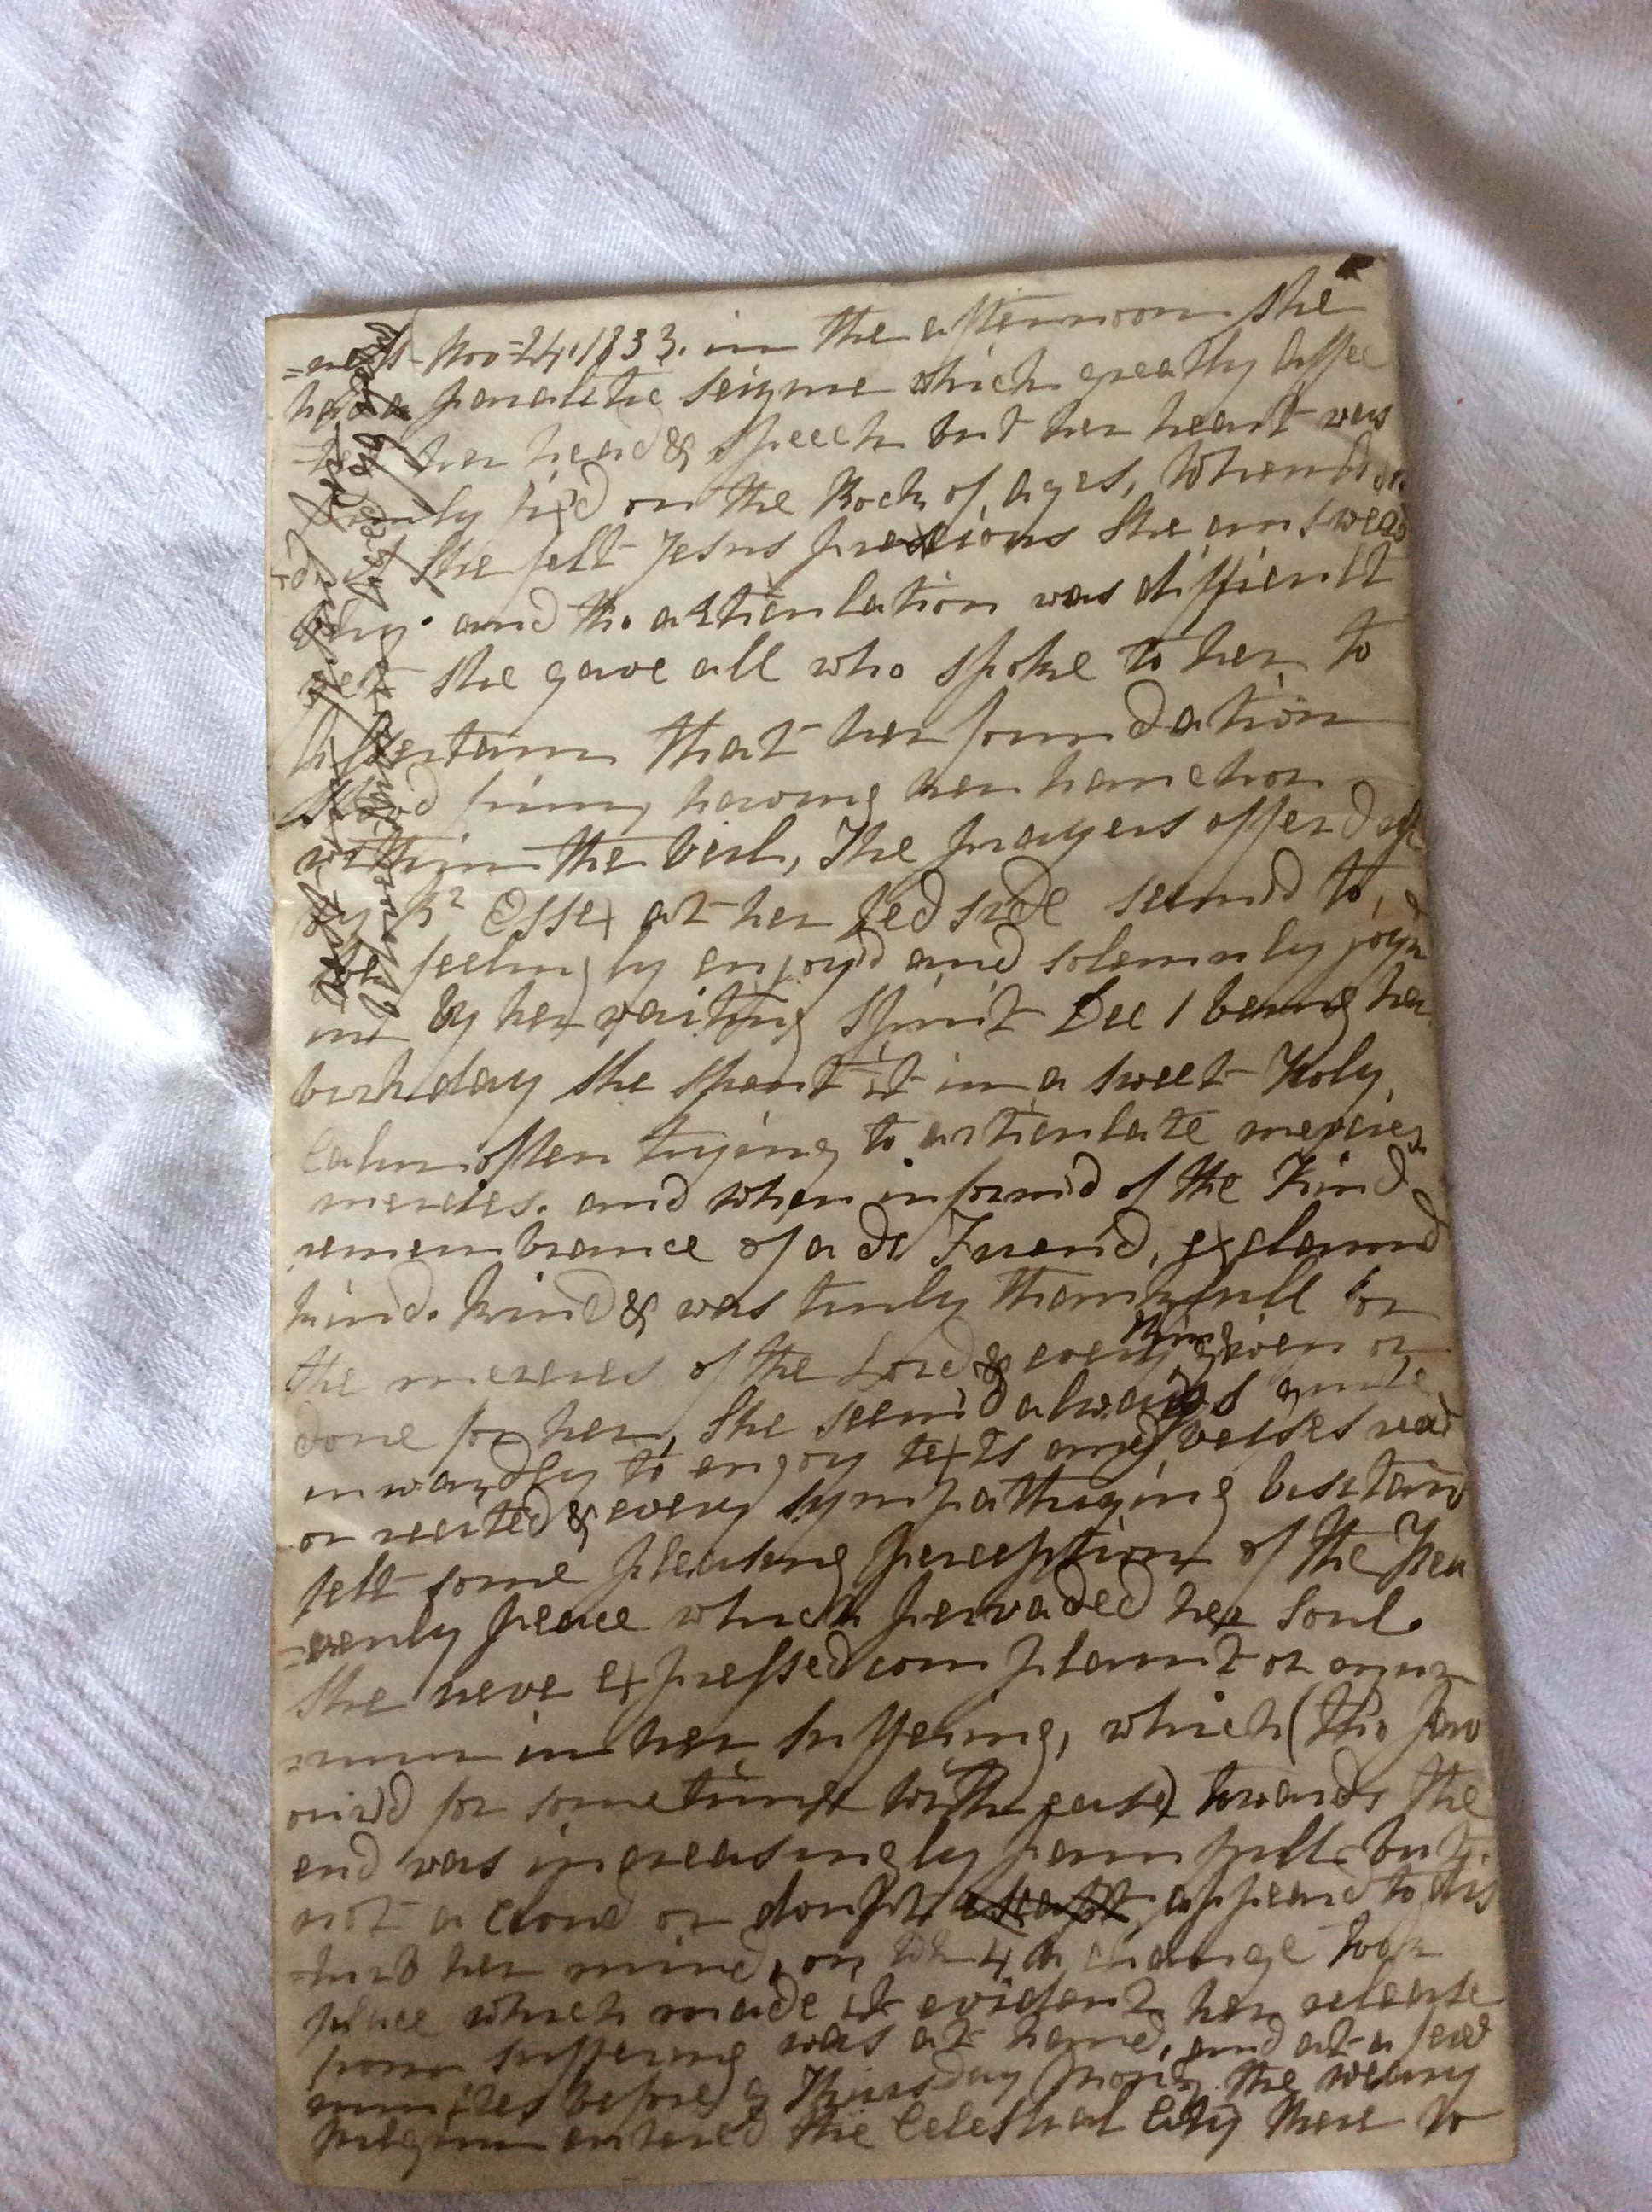 =ness Nov 24. 1833. in the afternoon she
had a paraletic seizure which greatly affec
=ted her head & speech but her heart was
firmly fixd on the Rock of ages, When
she felt Jesus precious she answerd
and tho articulation was difficult
yet she gave all who spoke to her to
assertain that her foundation
stood firm, having her hanchor
within the veil, The prayers offerd up
by Essex at her bedside seemd to
be feelingly enjoyd and solemnly joyn
in by her waiting spirit Dec 1 being her
birthday she spent it in a sweet holy
calm often trying to articulate mercies
mercies. and when informd of the Kind
remembrance of a dr Friend, exclamd
kind. kind & was truly thankfull for
the mercies of the Lord & every thing given or
done for her, She seemd always quite
inwardly to enjoy texts and verses read
or recited & every sympathizing visitant
felt some pleasing perception of the Hea
=venly peace which pervaded her soul.
She neve expressed complaint or
in her suffering, which (tho
for sometime with ease) towards the
end was increasingly painfull but
not a cloud or doubt appeard to dis
=turb her mind, on 4 a change took
place which made it evident her release
from suffering was at hand, and at a few
minutes before 9 Thursday Morng the weary
pilgrim entered the Celestial City there to